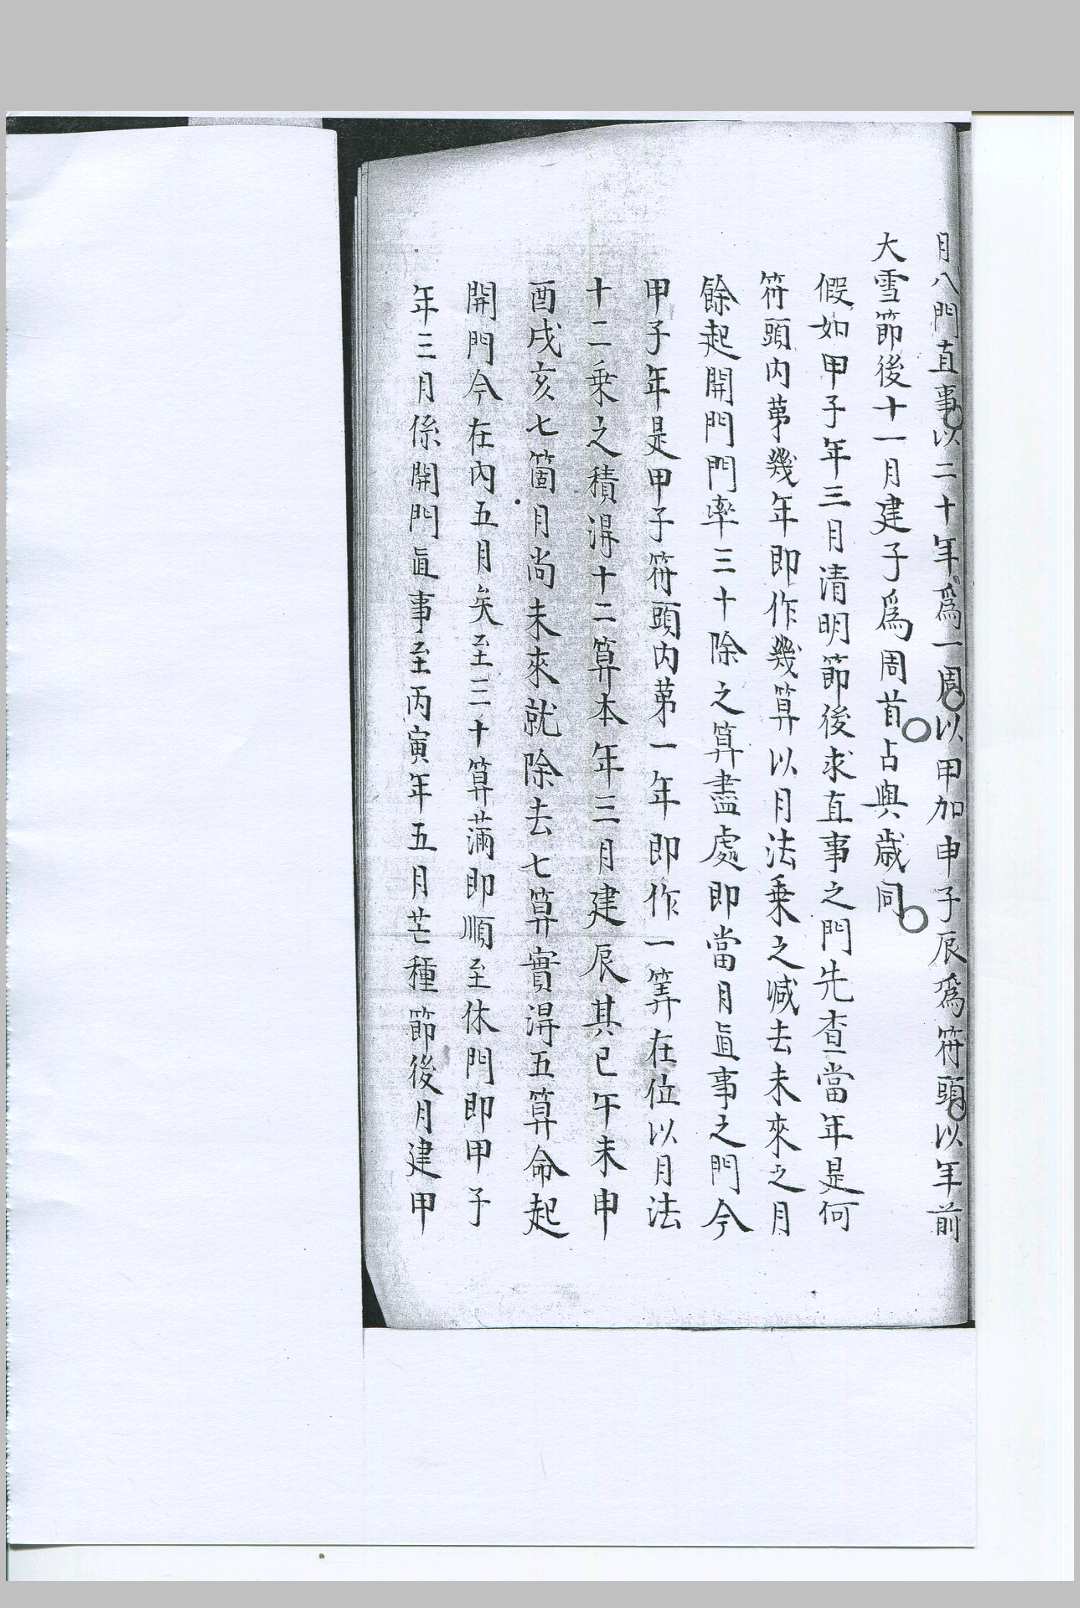 月八門直事以二十年為一周以甲加申子辰為符頭以年前
大雪節後十一月建子爲周首占與歲同
假如甲子年三月清明節後求直事之門先查當年是何
符頭內苐幾年即作幾算以月法乗之減去未來之月
餘起開門門率三十除之算盡處即當月直事之門今
甲子年是甲子符頭內苐一年即作一筭在位以月法
十二乗之積得十二算本年三月建辰其巳午未申
酉戌亥七箇月尚未來就除去七算實得五算命起
開門今在內五月矣至三十算滿即順至休門即甲子
年三月係開門直事至丙寅年五月芒種節後月建甲